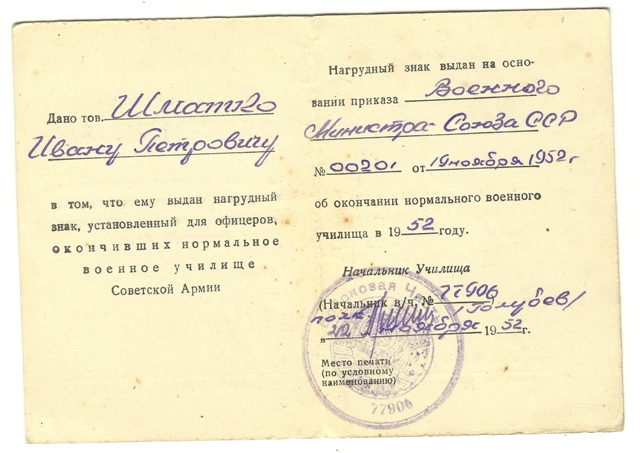 Дано тов. Шматко
Ивану Петровичу
в том, что ему выдан нагрудный
знак, установленный для офицеров,
окончивших нормальное
военное училище
Советской Армии
Нагрудный знак выдан на осно-
вании приказа Военного
Министра Союза ССР
№ 00201 от 19 ноября 1952 г
об окончании нормального военного
училища в 1952 году.
Начальник Училища
(Начальник в/ч, № 77906)
полк. /Голубев/
„22 ноября 1952 г.
Место печати
(по условному
наименованию)
77906